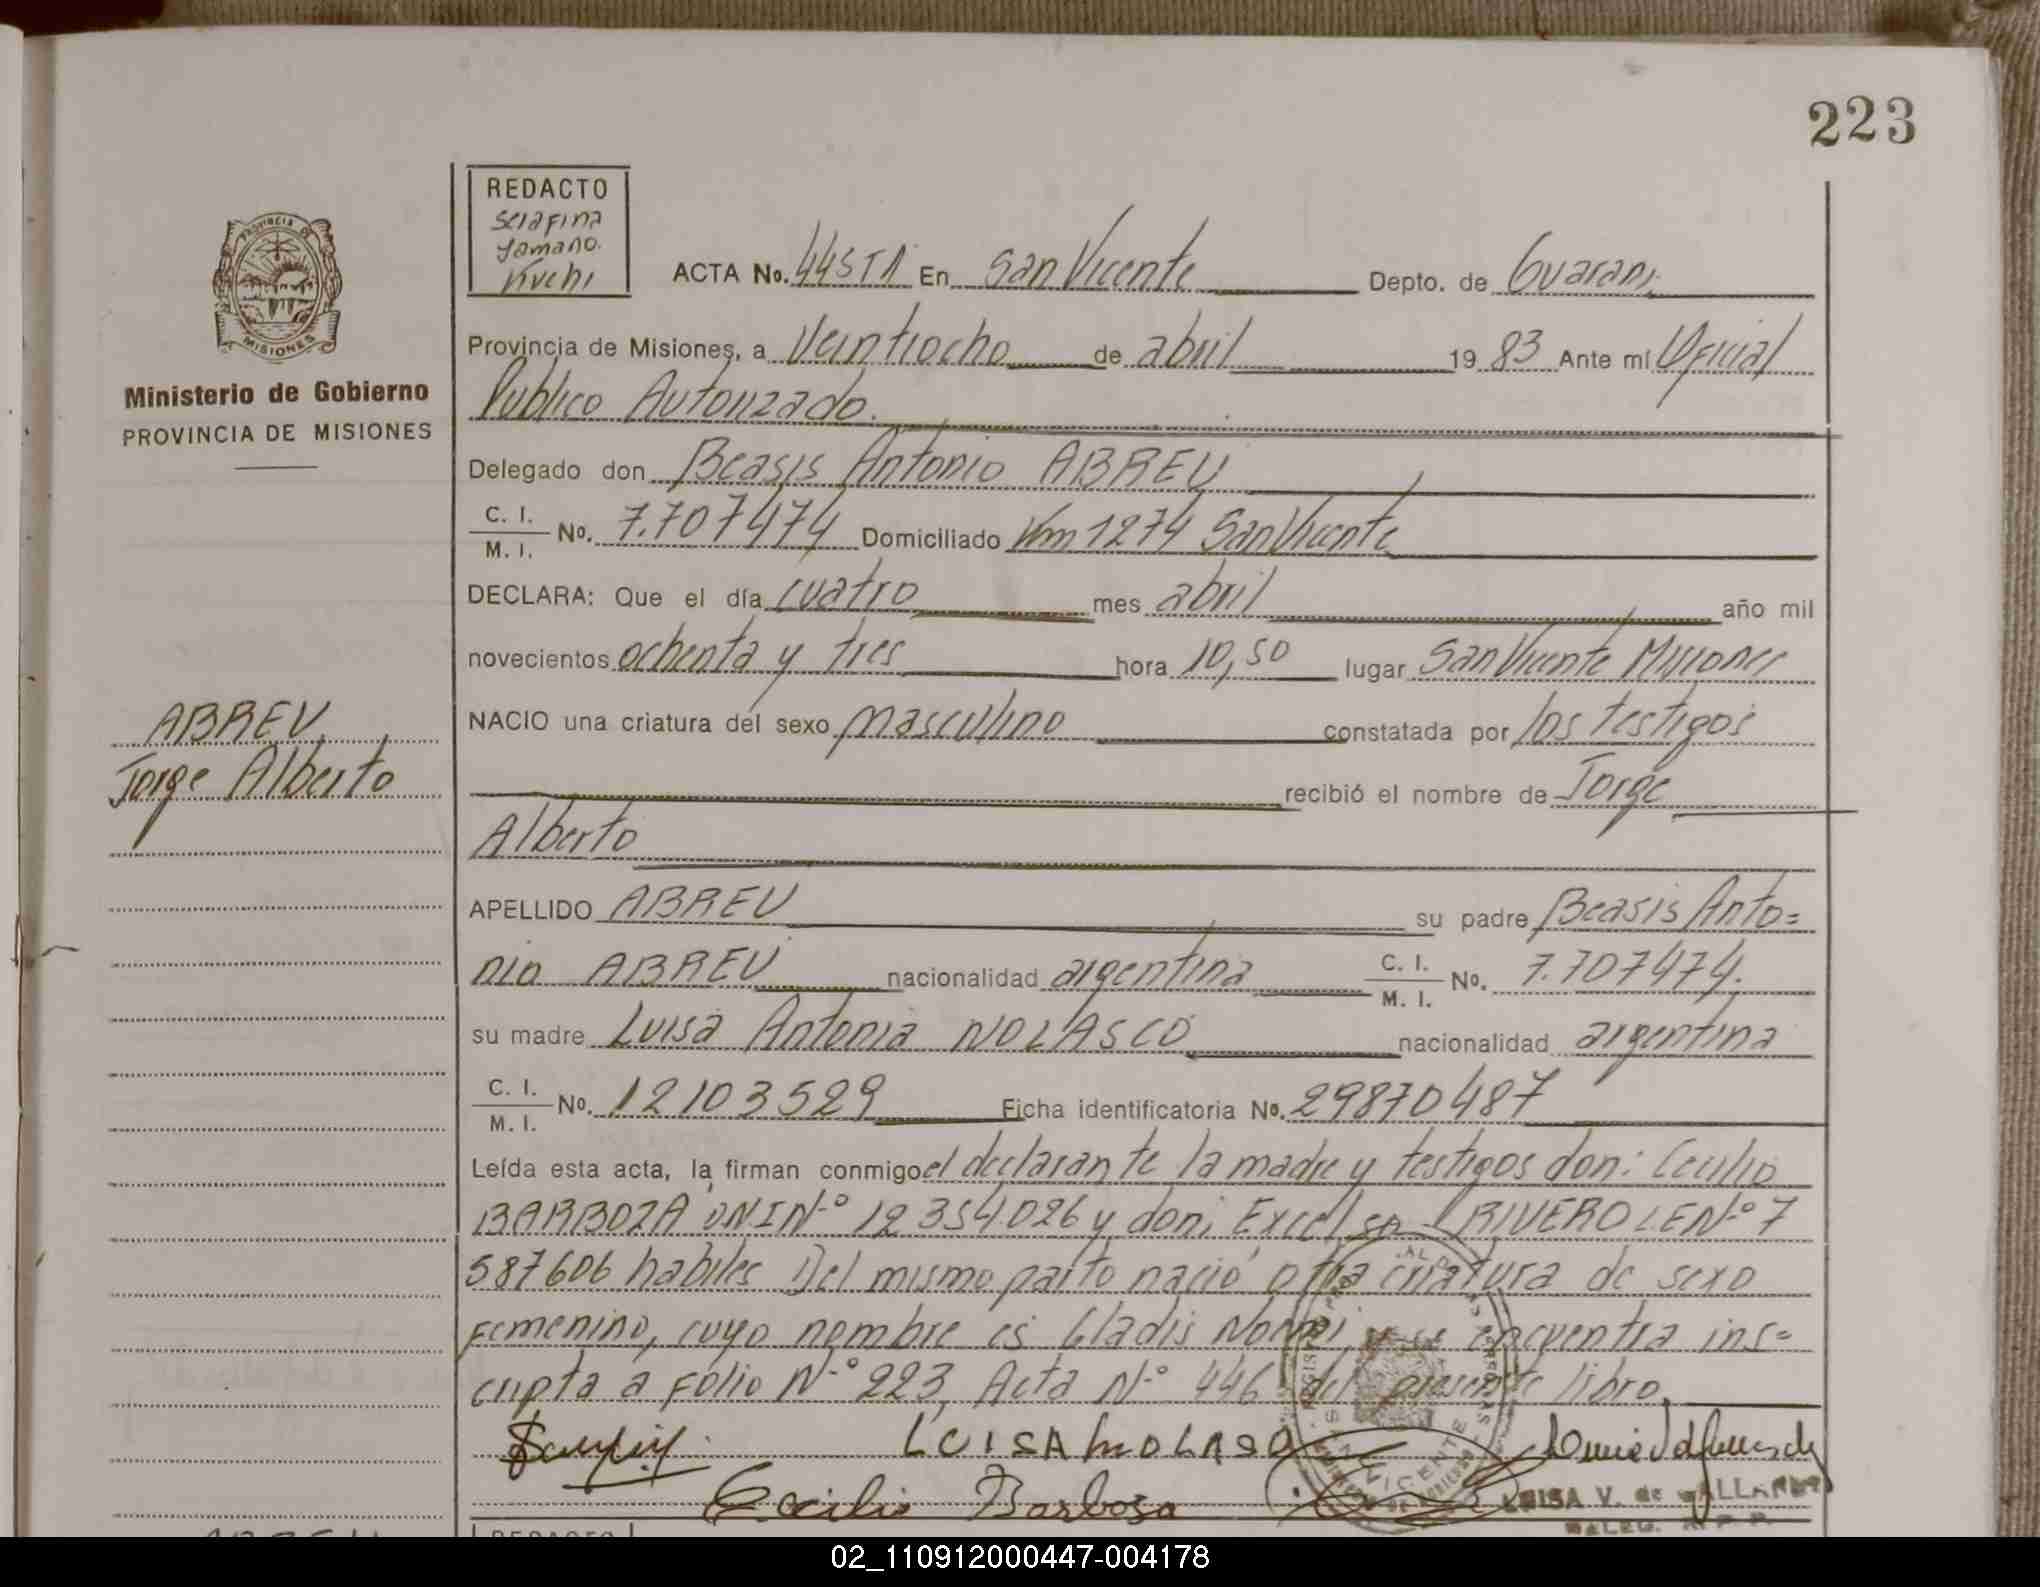 223
REDACTO
Serafina
Yamano
Kuchi
PROVINCIA DE
MISIONES
Ministerio de Gobierno
PROVINCIA DE MISIONES
ACTA No. 445TA En San Vicente Depto. de Guarani
Provincia de Misiones, a Veintiocho de abril 1983 Ante mí Oficial
Publico Autorizado.
Delegado don Beasis Antonio ABREU
C. I.
M. I. No. 7.707474 Domiciliado Km 1274 San Vicente
DECLARA: Que el día cuatro mes abril año mil
novecientos ochenta y tres hora 10,50 lugar San Vicente Misiones
NACIO una criatura del sexo masculino constatada por los testigos
recibió el nombre de Jorge
Alberto
ABREU
Jorge Alberto
APELLIDO ABREU su padre Beasis Anto=
nio ABREU nacionalidad argentina C. I.
M. I. No. 7.707474.
su madre Luisa Antonia NOLASCO nacionalidad argentina
C. I.
M. I. No. 12103529 Ficha identificatoria No. 29870487
Leída esta acta, la firman conmigo el declarante la madre y testigos don: Cecilio
BARBOZA DNI Nº 12354026 y don: Excelso RIVERO LE Nº 7
587606 habiles Del mismo parto nació otra criatura de sexo
femenino, cuyo nombre es Gladis Noemi, y se encuentra ins=
cripta a folio Nº 223, Acta Nº 446 del presente libro.
LUISA NOLASO
Cecilio Barbosa
SAN VICENTE
LUISA V. de
DELEG. R. P. P.
REDACTO
02_110912000447-004178